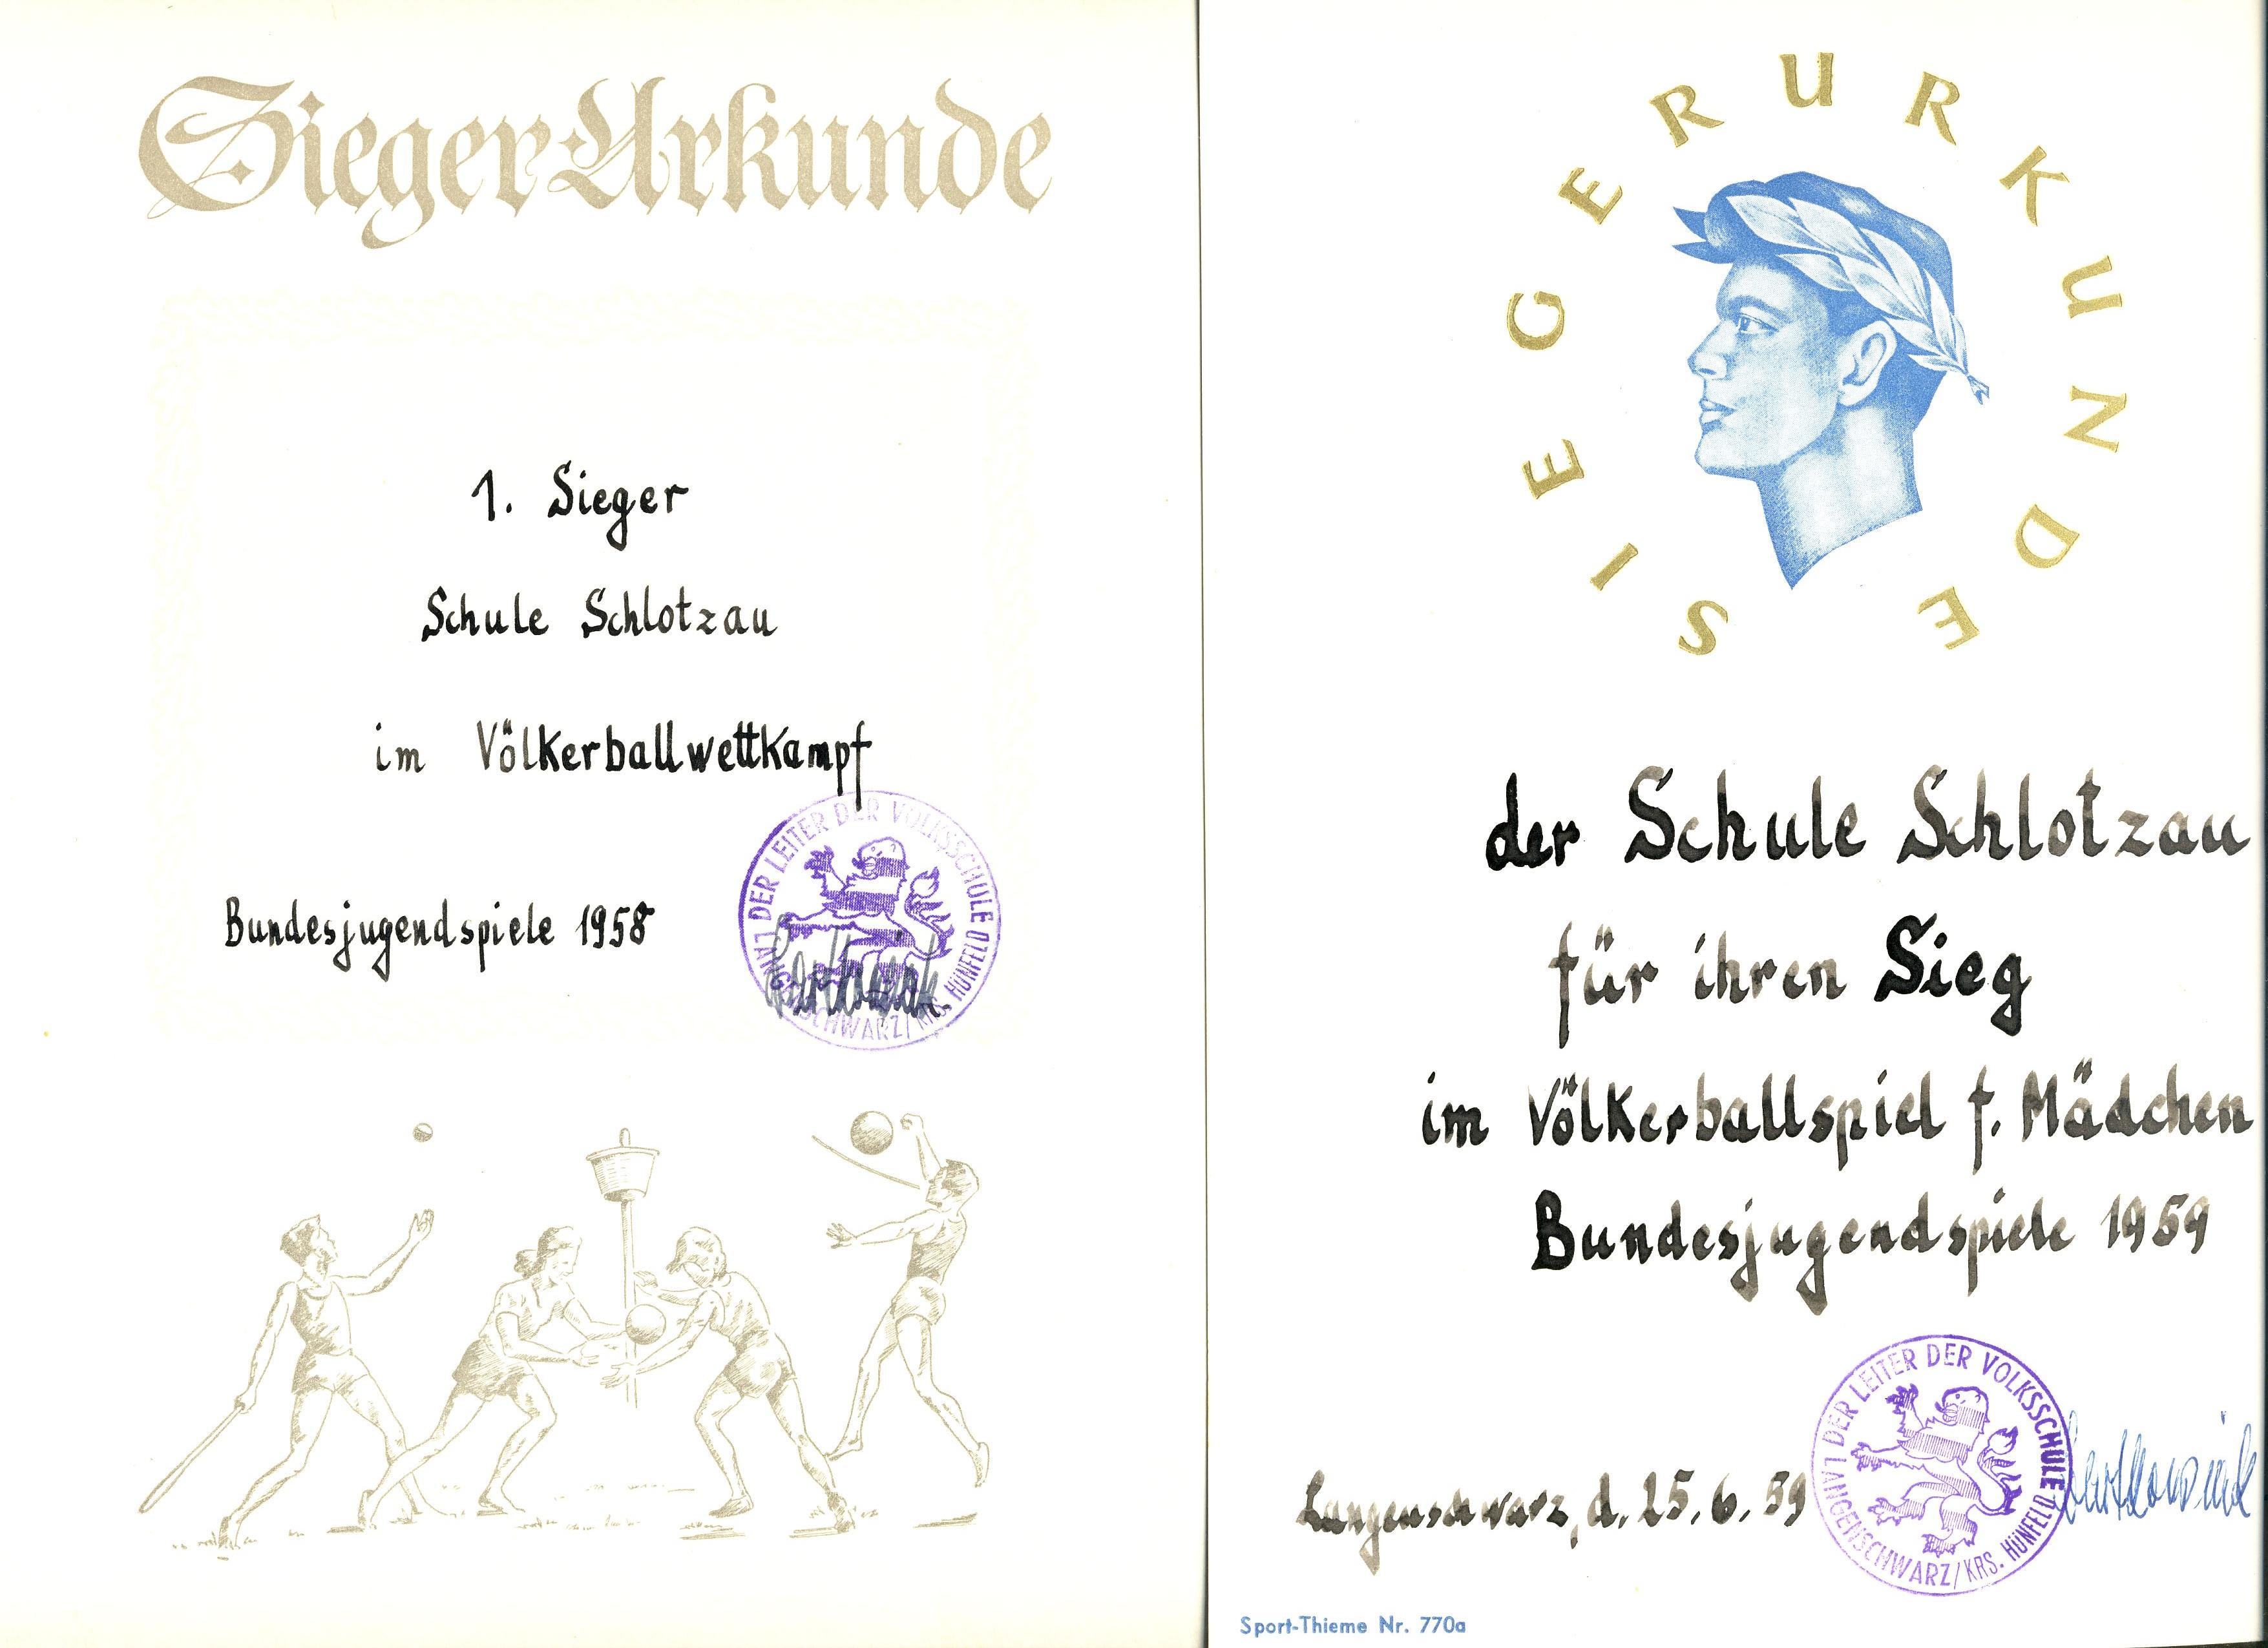 Sieger-Urkunde
1. Sieger
Schule Schlotzau
im Völkerballwettkampf
Bundesjugendspiele 1958
DER LEITER DER VOLKSSCHULE LANGENSCHWARZ/KRS. HÜNFELD
SIEGERURKUNDE
der Schule Schlotzau
für ihren Sieg
im Völkerballspiel f. Mädchen
Bundesjugendspiele 1959
Langenschwarz, d. 25. 6. 59
DER LEITER DER VOLKSSCHULE LANGENSCHWARZ/KRS. HÜNFELD
Sport-Thieme Nr. 770a